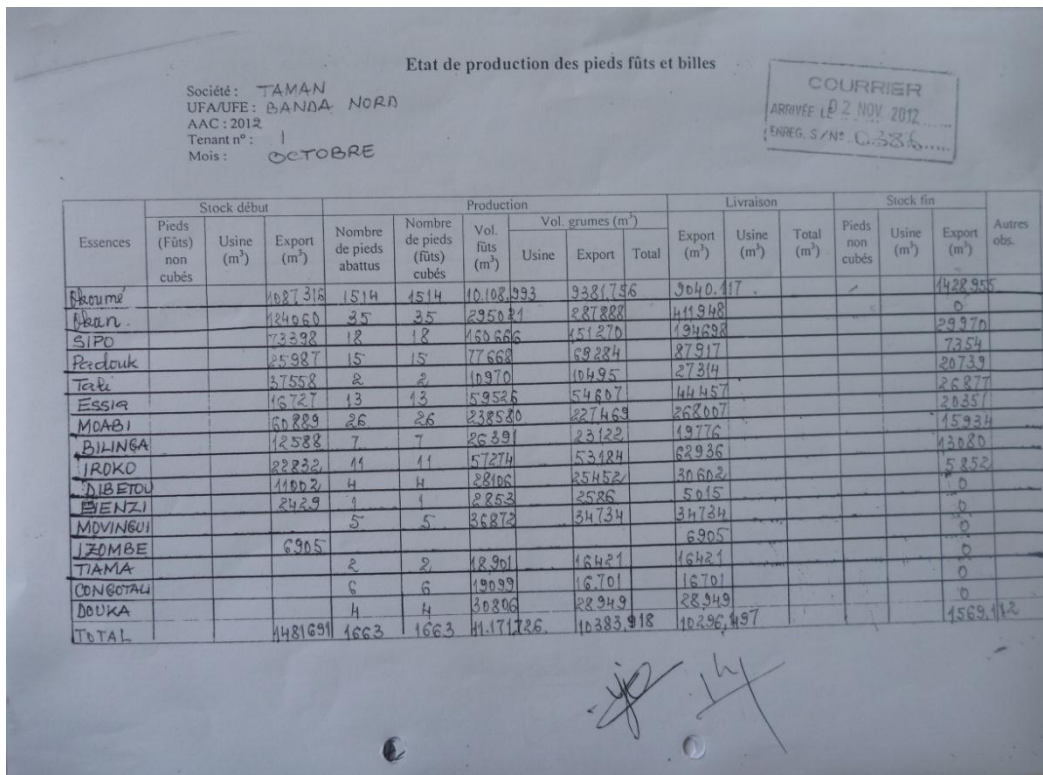 Etat de production des pieds fûts et billes
Société : TAMAN
UFA/UFE : BANDA NORD
AAC : 2012
Tenant n° : 1
Mois : OCTOBRE
COURRIER
ARRIVÉE LE 02 NOV. 2012
ENREG. S/N° 0386
Stock début Production Livraison Stock fin
Essences Pieds (Fûts) non cubés Usine (m³) Export (m³) Nombre de pieds abattus Nombre de pieds (fûts) cubés Vol. fûts (m³) Vol. grumes (m³) Usine Export Total Export (m³) Usine (m³) Total (m³) Pieds non cubés Usine (m³) Export (m³) Autres obs.
Okoumé 1087316 1514 1514 10.108,993 9381,756 9040.117 1428955
Okan 124060 35 35 295021 287888 411948 0
SIPO 73398 18 18 160666 151270 194698 29970
Padouk 25987 15 15 77668 69284 87917 7354
Tali 37558 2 2 10970 10495 27314 20739
Essia 16727 13 13 59526 54607 44457 26877
MOABI 60889 26 26 238580 227469 268007 20351
BILINGA 12588 7 7 26391 23122 19776 15934
IROKO 22832 11 11 57274 53184 62936 13080
DIBETOU 11002 4 4 28106 25452 30602 5852
BIENZI 2429 1 1 2853 2586 5015 0
MOVINGUI 5 5 36872 34734 34734 0
IZOMBE 6905 6905 0
TIAMA 2 2 18.901 16421 16421 0
CONGOTALI 6 6 19099 16.701 16701 0
DOUKA 4 4 30806 28.949 28.949 0
TOTAL 1481691 1663 1663 11.171,726. 10383,918 10296,497 1569,112